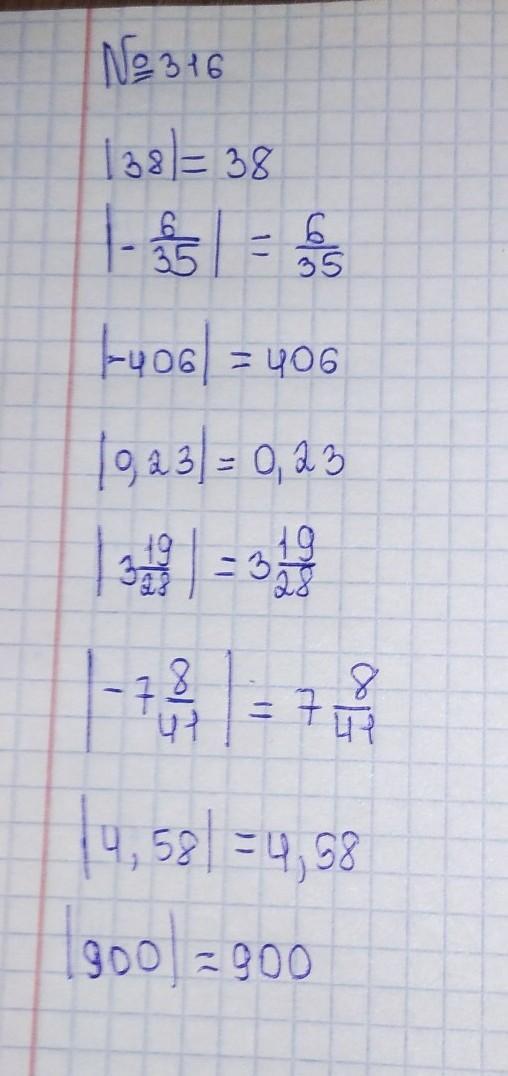 №316
|38| = 38
|-6/35| = 6/35
|-406| = 406
|0,23| = 0,23
|3 19/28| = 3 19/28
|-7 8/41| = 7 8/41
|4,58| = 4,58
|900| = 900